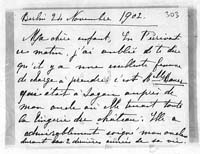 Berlin 24 Novembre 1902.
303
Ma chère enfant, En t'écrivant
ce matin, j'ai oublié de te dire
qu'il y a une excellente femme
de charge à prendre, c'est Mlle
qui était à Sagan auprès de
mon oncle où elle tenait toute
la lingerie du château. Elle a
admirablement soigné mon oncle
durant les 2 dernières années de sa vie.